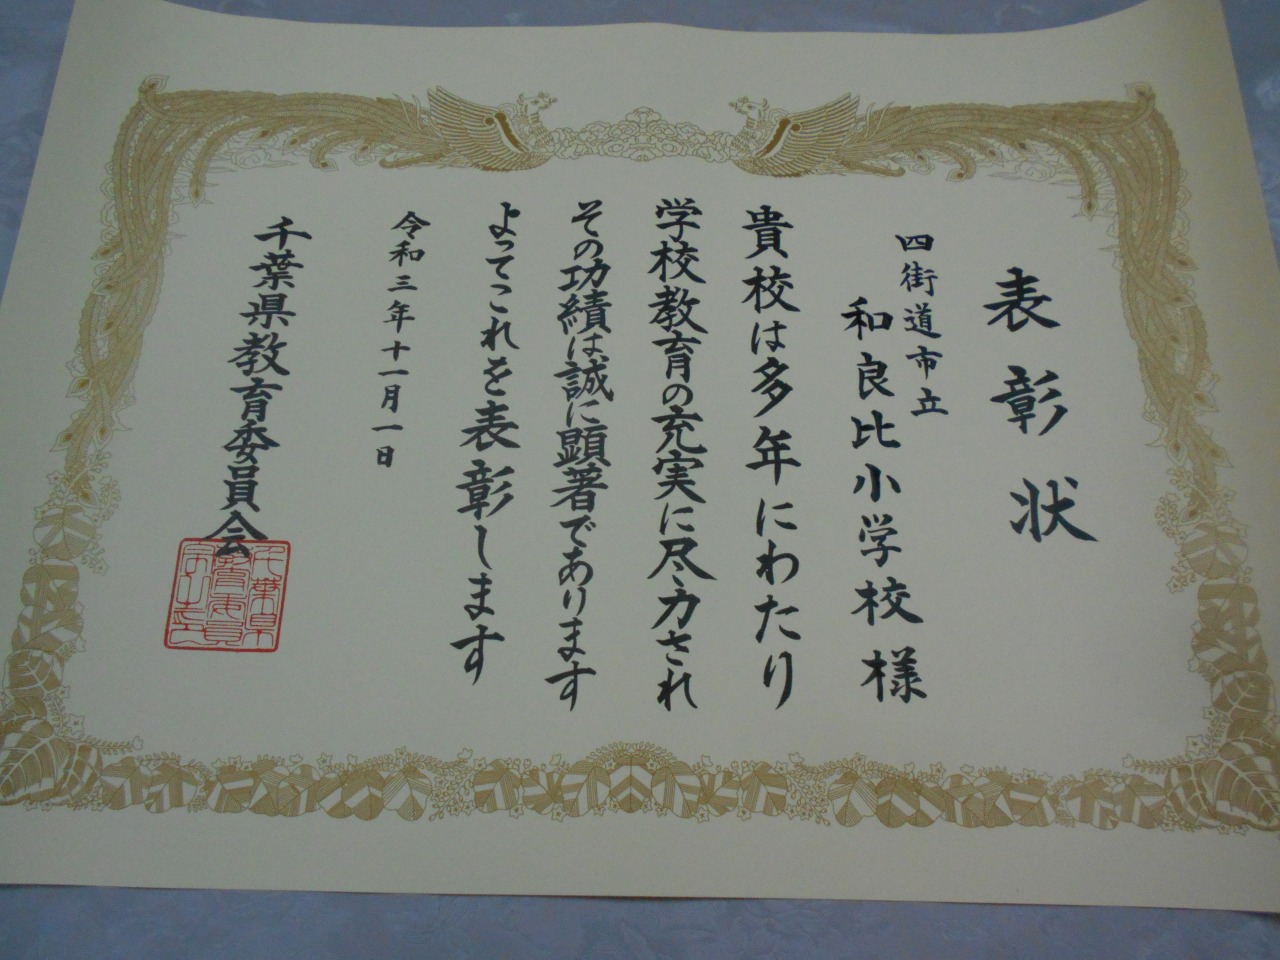 表彰状
四街道市立
和良比小学校様
貴校は多年にわたり
学校教育の充実に尽力され
その功績は誠に顕著であります
よってこれを表彰します
令和三年十一月一日
千葉県教育委員会